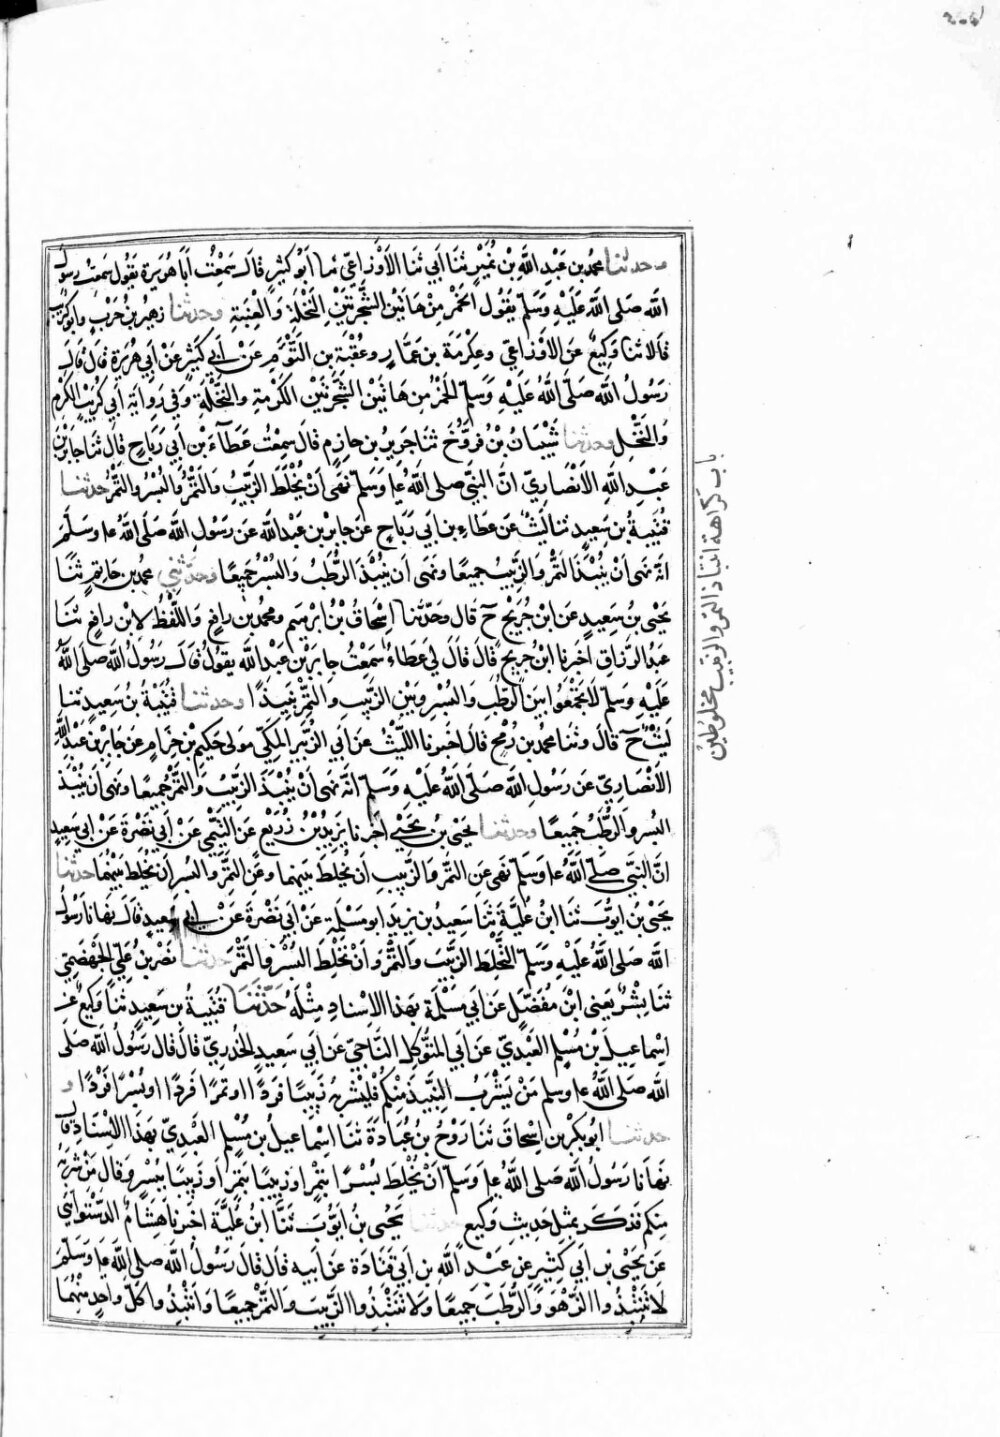 وحدثنا محمد بن عبد الله بن نمير ثنا أبي ثنا الأوزاعي ثنا أبو كثير قال سمعت أبا هريرة يقول سمعت رسول
الله صلى الله عليه وسلم يقول الخمر من هاتين الشجرتين النخلة والعنبة وحدثنا زهير بن حرب وابو كريب
قالا ثنا وكيع عن الأوزاعي وعكرمة بن عمار وعقبة بن التوم عن أبي كثير عن أبي هريرة قال قال
رسول الله صلى الله عليه وسلم الخمر من هاتين الشجرتين الكرمة والنخلة وفي رواية أبي كريب الكرم
والنخل وحدثنا شيبان بن فروخ ثنا جرير بن حازم قال سمعت عطاء بن أبي رباح قال ثنا جابر بن
عبد الله الأنصاري ان النبي صلى الله ع وسلم نهى أن يخلط الزبيب والتمر والبسر والتمر حدثنا
قتيبة بن سعيد ثنا ليث عن عطاء بن ابي رباح عن جابر بن عبد الله عن رسول الله صلى الله ع وسلم
انه نهى أن ينبذ التمر والزبيب جميعا ونهى ان ينبذ الرطب والبسر جميعا وحدثني محمد بن حاتم ثنا
يحيى بن سعيد عن ابن جريج ح قال وحدثنا إسحاق بن ابرهيم ومحمد بن رافع واللفظ لابن رافع ثنا
عبد الرزاق اخبرنا ابن جريج قال قال لي عطاء سمعت جابر بن عبد الله يقول قال رسول الله صلى الله
عليه وسلم لا تجمعوا بين الرطب والبسر وبين الزبيب والتمر نبيذا وحدثنا قتيبة بن سعيد ثنا
ليث ح قال وثنا محمد بن رمح قال اخبرنا الليث عن أبي الزبير المكي مولى حكيم بن حزام عن جابر بن عبد الله
الأنصاري عن رسول الله صلى الله عليه وسلم انه نهى أن ينبذ الزبيب والتمر جميعا ونهى ان ينبذ
البسر والرطب جميعا وحدثنا يحيى بن يحيى أخبرنا يزيد بن زريع عن التيمي عن أبي نضرة عن ابي سعيد
ان النبي صلى الله ع وسلم نهى عن التمر والزبيب ان يخلط بينهما وعن التمر والبسر ان يخلط بينهما حدثنا
يحيى بن ايوب ثنا ابن علية ثنا سعيد بن يزيد ابو مسلمة عن أبي نضرة عن ابي سعيد قال نهانا رسول
الله صلى الله عليه وسلم ان نخلط الزبيب والتمر وان نخلط البسر والتمر وحدثنا نصر بن علي الجهضمي
ثنا بشر يعني ابن مفضل عن ابي مسلمة بهذا الاسناد مثله حدثنا قتيبة بن سعيد ثنا وكيع عن
إسماعيل بن مسلم العبدي عن أبي المتوكل الناجي عن أبي سعيد الخدري قال قال رسول الله صلى
الله صلى الله ع وسلم من يشرب النبيذ منكم فليشربه زبيبا فردا او تمرا فردا او بسرا فردا و
حدثنا ابو بكر بن إسحاق ثنا روح بن عبادة ثنا إسماعيل بن مسلم العبدي بهذا الاسناد قال
نهانا رسول الله صلى الله ع وسلم ان نخلط بسرا بتمر او زبيبا بتمر او زبيبا ببسر وقال من شربه
منكم فذكر بمثل حديث وكيع حدثنا يحيى بن ايوب ثنا ابن علية اخبرنا هشام الدستوائي
عن يحيى بن ابي كثير عن عبد الله بن ابي قتادة عن أبيه قال قال رسول الله صلى الله ع وسلم
لا تنتبذوا الزهو والرطب جميعا ولا تنتبذوا الزبيب والتمر جميعا وانتبذوا كل واحد منهما
باب كراهة انتباذ التمر والزبيب مخلوطين